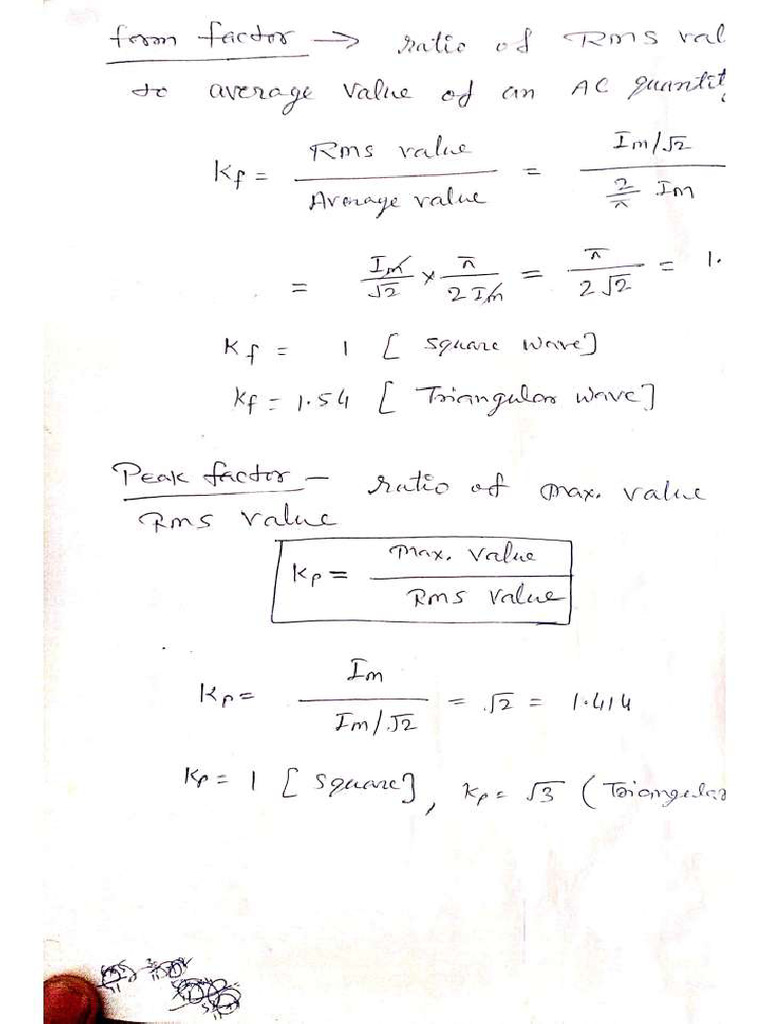 form factor → ratio of Rms val
to average value of an AC quantit
Kf = Rms value / Average value = Im/√2 / 2/π Im
= Im/√2 × π/2Im = π/2√2 = 1.
Kf = 1 [ square wave]
Kf = 1.54 [ Triangular wave]
Peak factor – ratio of max. value
Rms value
Kp = max. value / Rms value
Kp = Im / Im/√2 = √2 = 1.414
Kp = 1 [ square], Kp = √3 (Triangular